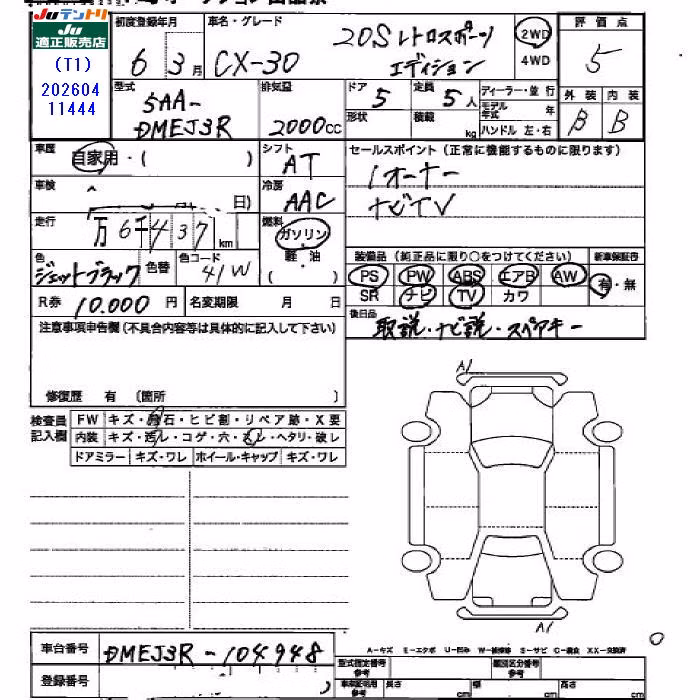 Juテントリ
Ju
適正販売店
(T1)
202604
11444
初度登録年月
6 3月
車名・グレード
CX-30
20S レトロスポーツ
エディション
2WD
4WD
評価点
5
外装 内装
B B
型式
5AA-
DMEJ3R
排気量
2000cc
ドア
5
形状
定員
5人
積載
kg
ディーラー・並行
モデル年式 年
ハンドル 左・右
車歴
自家用・( )
シフト
AT
セールスポイント(正常に機能するものに限ります)
1オーナー
ナビTV
車検
日)
冷房
AAC
走行
万6千437km
燃料
ガソリン
軽・油
( )
色
ジェットブラック
色替
色コード
41W
装備品(純正品に限り○をつけてください)
新車保証書
PS PW ABS エアB AW
有・無
SR ナビ TV カワ
R券 10.000円
名変期限 月 日
後日品
取説・ナビ説・スペアキー
注意事項申告欄(不具合内容等は具体的に記入して下さい)
修復歴 有 〔箇所 〕
検査員
記入欄
FW キズ・飛石・ヒビ割・リペア跡・X要
内装 キズ・汚レ・コゲ・穴・スレ・ヘタリ・破レ
ドアミラー キズ・ワレ ホイール・キャップ キズ・ワレ
A1
A1
車台番号
DMEJ3R-104948
登録番号
A-キズ E-エクボ U-凹み W-補修跡 S-サビ C-腐食 XX-交換済
型式指定番号
参考
類別区分番号
参考
車車証明用
参考
長さ cm
幅 cm
高さ cm